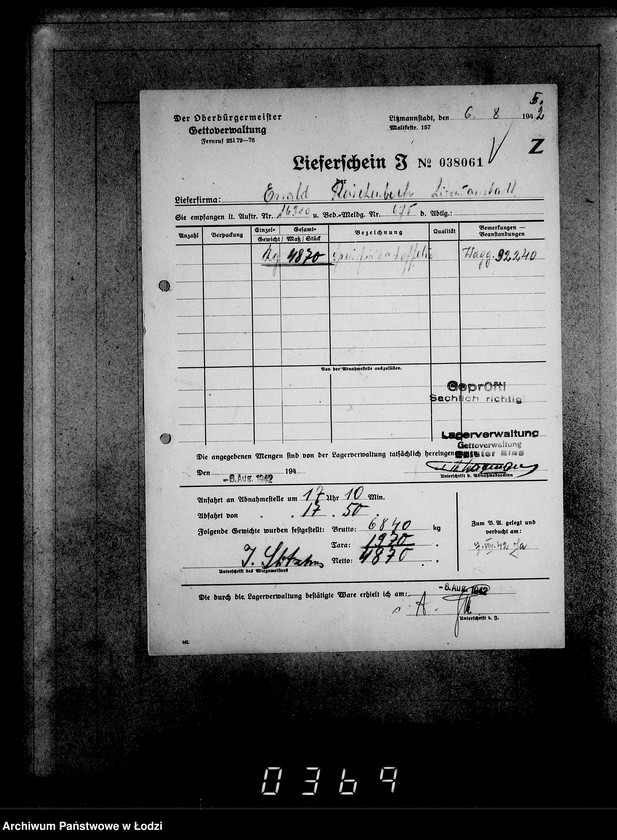 5.
Der Oberbürgermeister
Gettoverwaltung
Fernruf 25179—76
Litzmannstadt, den 6. 8 1942
Moltkestr. 157
Z
Lieferschein J № 038061
Lieferfirma: Ewald Litzmannstadt
Sie empfangen lt. Auftr. Nr. u. Bed.-Meldg. Nr. 675 d. Abtlg.:
Anzahl Verpackung Einzel- Gesamt- Gewicht / Maß / Stück Bezeichnung Qualität Bemerkungen — Beanstandungen
kg 4870 Speisekartoffeln Wagg. 92240
Von der Abnahmestelle auszufüllen.
Geprüft!
Sachlich richtig!
Lagerverwaltung
Gettoverwaltung
Die angegebenen Mengen sind von der Lagerverwaltung tatsächlich hereingen
Den -6. Aug. 1942 194
Unterschrift d. Abnahmebeamten
Anfahrt an Abnahmestelle um 17 Uhr 10 Min.
Abfahrt von " 17 " 50 "
Folgende Gewichte wurden festgestellt: Brutto: 6840 kg
Tara: 1970 "
Netto: 4870 "
Unterschrift des Wiegemeisters
Zum B. A. gelegt und
verbucht am:
7. VIII. 42
Die durch die Lagerverwaltung bestätigte Ware erhielt ich am: -6. Aug. 1942
Unterschrift d. J.
0369
Archiwum Państwowe w Łodzi